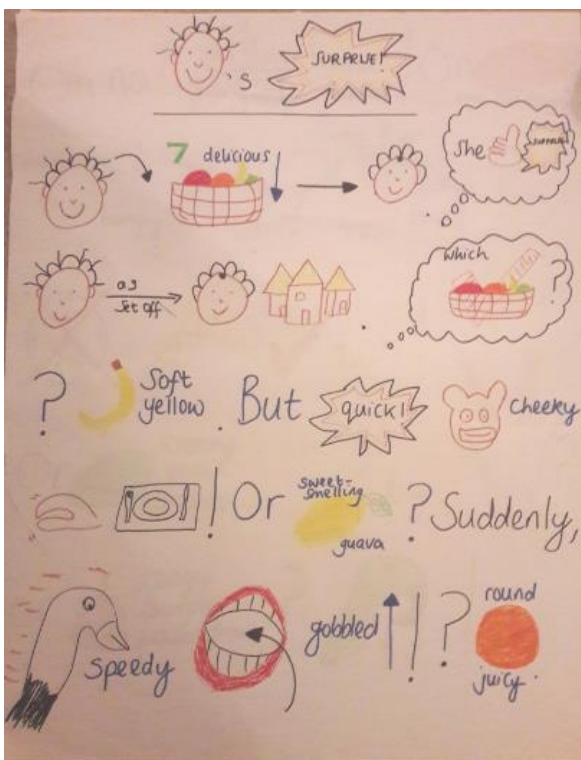 's SURPRISE!
7 delicious
She SURPRISE
as
Set off
which
?
? Soft
yellow. But quick! cheeky
! Or sweet-
smelling
guava ? Suddenly,
speedy gobbled ! ? round
juicy.